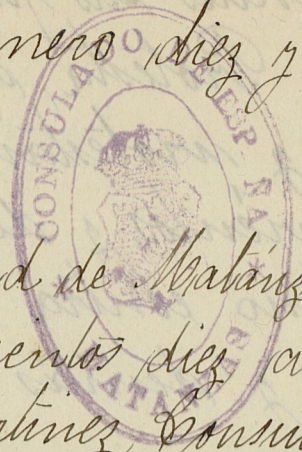 nero diez y
CONSULADO DE ESPAÑA
d de Matánz
entos diez a
MATANZAS
rtinez, Consu